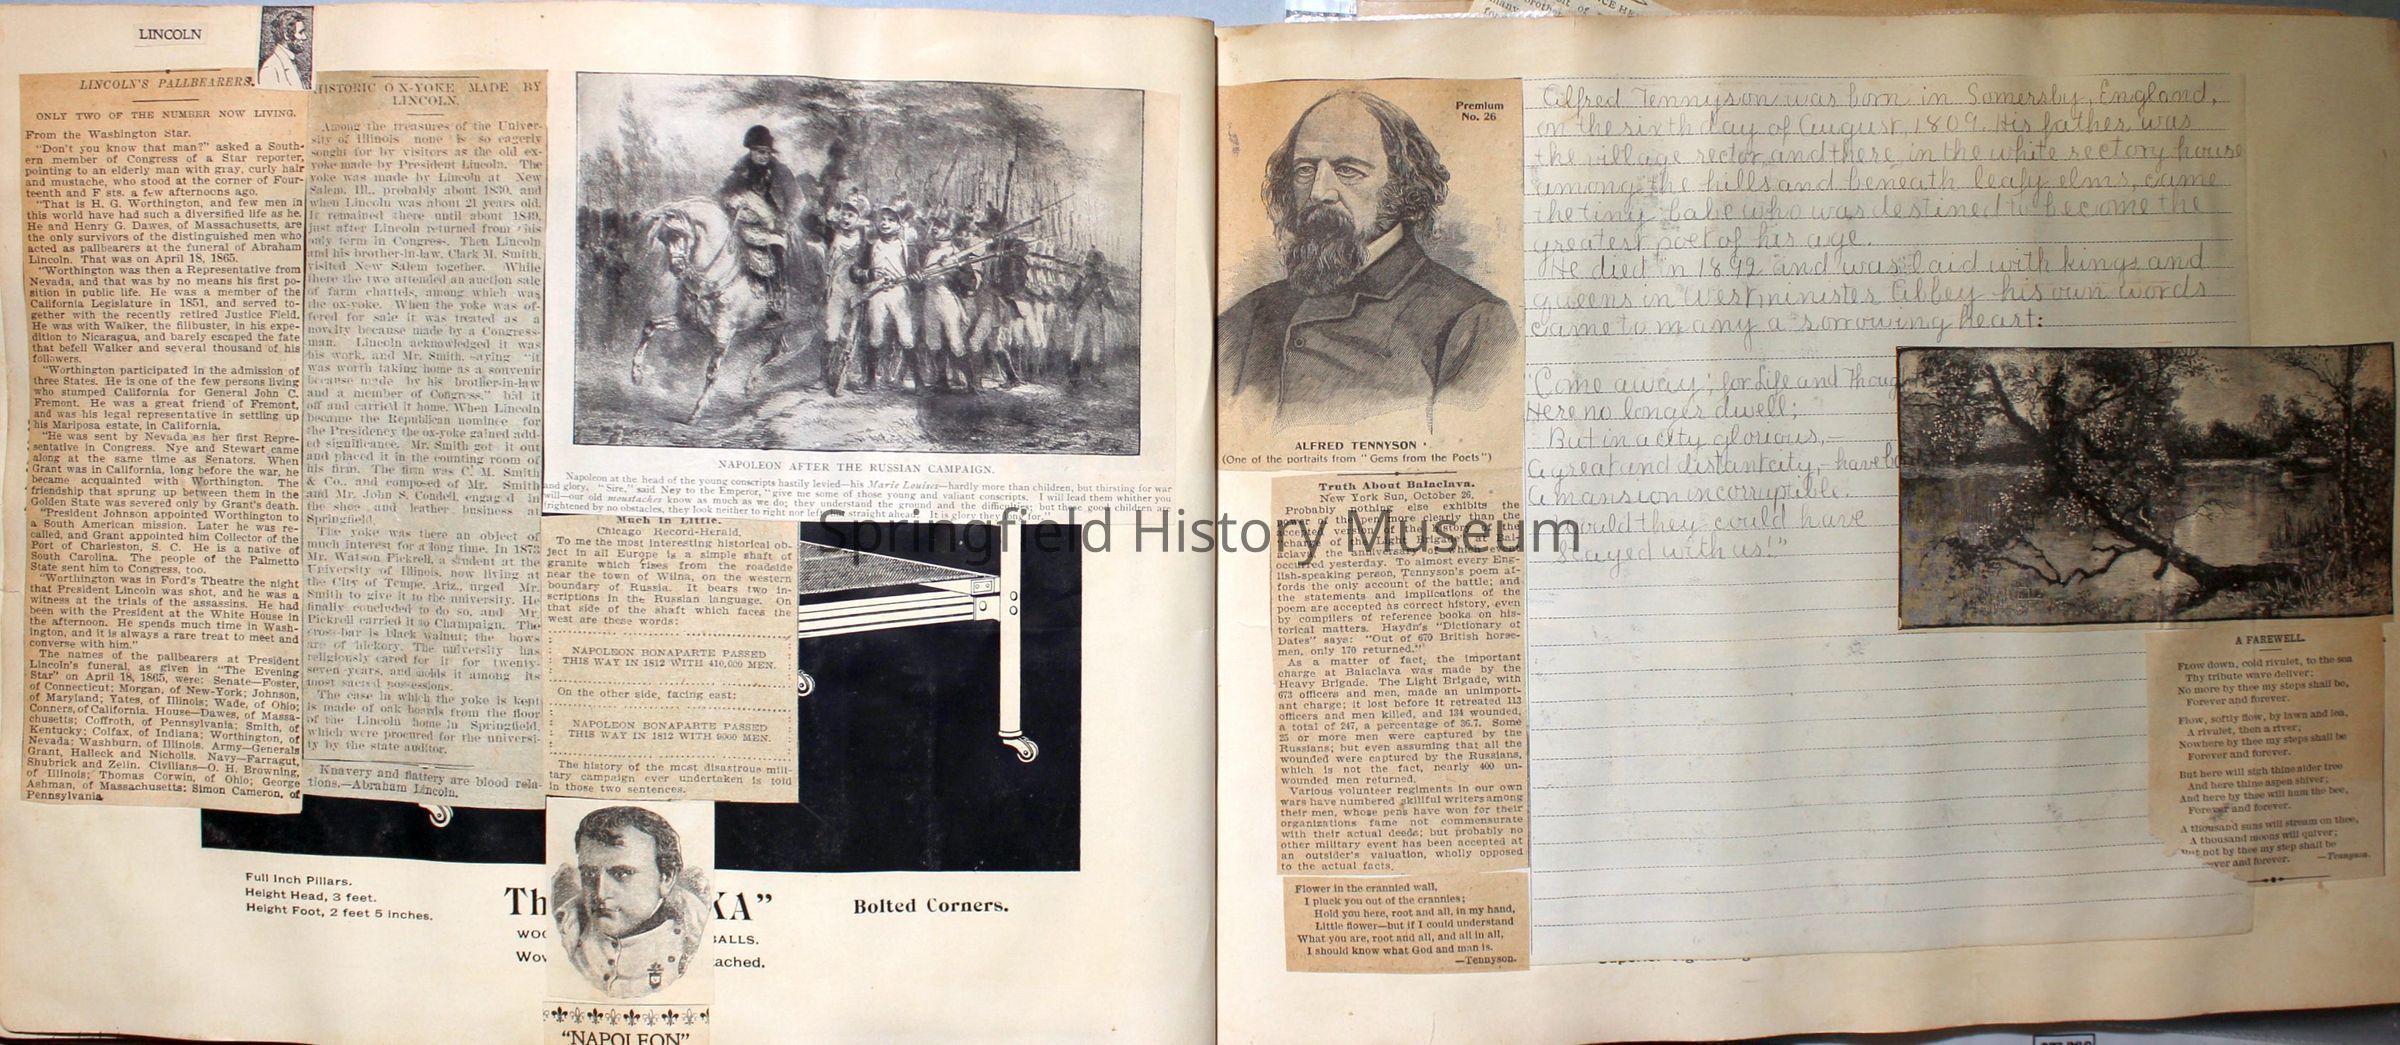 LINCOLN
LINCOLN'S PALLBEARERS.
ONLY TWO OF THE NUMBER NOW LIVING.
From the Washington Star.
"Don't you know that man?" asked a South-
ern member of Congress of a Star reporter,
pointing to an elderly man with gray, curly hair
and mustache, who stood at the corner of Four-
teenth and F sts. a few afternoons ago.
"That is H. G. Worthington, and few men in
this world have had such a diversified life as he.
He and Henry G. Dawes, of Massachusetts, are
the only survivors of the distinguished men who
acted as pallbearers at the funeral of Abraham
Lincoln. That was on April 18, 1865.
"Worthington was then a Representative from
Nevada, and that was by no means his first po-
sition in public life. He was a member of the
California Legislature in 1851, and served to-
gether with the recently retired Justice Field.
He was with Walker, the filibuster, in his expe-
dition to Nicaragua, and barely escaped the fate
that befell Walker and several thousand of his
followers.
"Worthington participated in the admission of
three States. He is one of the few persons living
who stumped California for General John C.
Fremont. He was a great friend of Fremont,
and was his legal representative in settling up
his Mariposa estate, in California.
"He was sent by Nevada as her first Repre-
sentative in Congress. Nye and Stewart came
along at the same time as Senators. When
Grant was in California, long before the war, he
became acquainted with Worthington. The
friendship that sprung up between them in the
Golden State was severed only by Grant's death.
"President Johnson appointed Worthington to
a South American mission. Later he was re-
called, and Grant appointed him Collector of the
Port of Charleston, S. C. He is a native of
South Carolina. The people of the Palmetto
State sent him to Congress, too.
"Worthington was in Ford's Theatre the night
that President Lincoln was shot, and he was a
witness at the trials of the assassins. He had
been with the President at the White House in
the afternoon. He spends much time in Wash-
ington, and it is always a rare treat to meet and
converse with him."
The names of the pallbearers at President
Lincoln's funeral, as given in "The Evening
Star" on April 18, 1865, were: Senate—Foster,
of Connecticut; Morgan, of New-York; Johnson,
of Maryland; Yates, of Illinois; Wade, of Ohio;
Conners, of California. House—Dawes, of Massa-
chusetts; Coffroth, of Pennsylvania; Smith, of
Kentucky; Colfax, of Indiana; Worthington, of
Nevada; Washburn, of Illinois. Army—Generals
Grant, Halleck and Nicholls. Navy—Farragut,
Shubrick and Zelin. Civilians—O. H. Browning,
of Illinois; Thomas Corwin, of Ohio; George
Ashman, of Massachusetts; Simon Cameron, of
Pennsylvania
HISTORIC OX-YOKE MADE BY
LINCOLN.
Among the treasures of the Univer-
sity of Illinois none is so eagerly
sought for by visitors as the old ox-
yoke made by President Lincoln. The
yoke was made by Lincoln at New
Salem, Ill., probably about 1830, and
when Lincoln was about 21 years old.
It remained there until about 1849,
just after Lincoln returned from his
only term in Congress. Then Lincoln
and his brother-in-law, Clark M. Smith,
visited New Salem together. While
there the two attended an auction sale
of farm chattels, among which was
the ox-yoke. When the yoke was of-
fered for sale it was treated as a
novelty because made by a Congress-
man. Lincoln acknowledged it was
his work, and Mr. Smith, saying "it
was worth taking home as a souvenir
because made by his brother-in-law
and a member of Congress," bid it
off and carried it home. When Lincoln
became the Republican nominee for
the Presidency the ox-yoke gained add-
ed significance. Mr. Smith got it out
and placed it in the counting room of
his firm. The firm was C. M. Smith
& Co., and composed of Mr. Smith
and Mr. John S. Condell, engaged in
the shoe and leather business at
Springfield.
The yoke was there an object of
much interest for a long time. In 1873
Mr. Watson Pickrell, a student at the
University of Illinois, now living at
the City of Tempe, Ariz., urged Mr.
Smith to give it to the university. He
finally concluded to do so, and Mr.
Pickrell carried it to Champaign. The
cross-bar is black walnut; the bows
are of hickory. The university has
religiously cared for it for twenty-
seven years, and holds it among its
most sacred possessions.
The case in which the yoke is kept
is made of oak boards from the floor
of the Lincoln home in Springfield,
which were procured for the universi-
ty by the state auditor.
Knavery and flattery are blood rela-
tions.—Abraham Lincoln.
NAPOLEON AFTER THE RUSSIAN CAMPAIGN.
Napoleon at the head of the young conscripts hastily levied—his Marie Louises—hardly more than children, but thirsting for war
and glory. "Sire," said Ney to the Emperor, "give me some of those young and valiant conscripts. I will lead them whither you
will—our old moustaches know as much as we do; they understand the ground and the difficulty; but these good children are
frightened by no obstacles, they look neither to right nor left, but straight ahead. It is glory they long for."
Much in Little.
Chicago Record-Herald.
To me the most interesting historical ob-
ject in all Europe is a simple shaft of
granite which rises from the roadside
near the town of Wilna, on the western
boundary of Russia. It bears two in-
scriptions in the Russian language. On
that side of the shaft which faces the
west are these words:
NAPOLEON BONAPARTE PASSED
THIS WAY IN 1812 WITH 410,000 MEN.
On the other side, facing east:
NAPOLEON BONAPARTE PASSED
THIS WAY IN 1812 WITH 9000 MEN.
The history of the most disastrous mili-
tary campaign ever undertaken is told
in those two sentences.
Full Inch Pillars.
Height Head, 3 feet.
Height Foot, 2 feet 5 inches.
Th KA"
Bolted Corners.
WOO BALLS.
Wov ached.
"NAPOLEON"
Premium
No. 26
ALFRED TENNYSON
(One of the portraits from "Gems from the Poets")
Truth About Balaclava.
New York Sun, October 26.
Probably nothing else exhibits the
power of the pen more clearly than the
accepted version of the history of the
charge of the Light Brigade at Bal-
aclava, the anniversary of which even
occurred yesterday. To almost every Eng-
lish-speaking person, Tennyson's poem af-
fords the only account of the battle; and
the statements and implications of the
poem are accepted as correct history, even
by compilers of reference books on his-
torical matters. Haydn's "Dictionary of
Dates" says: "Out of 670 British horse-
men, only 170 returned."
As a matter of fact, the important
charge at Balaclava was made by the
Heavy Brigade. The Light Brigade, with
673 officers and men, made an unimport-
ant charge; it lost before it retreated 113
officers and men killed, and 134 wounded,
a total of 247, a percentage of 36.7. Some
25 or more men were captured by the
Russians; but even assuming that all the
wounded were captured by the Russians,
which is not the fact, nearly 400 un-
wounded men returned.
Various volunteer regiments in our own
wars have numbered skillful writers among
their men, whose pens have won for their
organizations fame not commensurate
with their actual deeds; but probably no
other military event has been accepted at
an outsider's valuation, wholly opposed
to the actual facts.
Flower in the crannied wall,
I pluck you out of the crannies;
Hold you here, root and all, in my hand,
Little flower—but if I could understand
What you are, root and all, and all in all,
I should know what God and man is.
—Tennyson.
Alfred Tennyson was born in Somersby, England,
on the sixth day of August, 1809. His father was
the village rector, and there, in the white rectory house
among the hills and beneath leafy elms, came
the tiny babe who was destined to become the
greatest poet of his age.
He died in 1892 and was laid with kings and
queens in Westminister Abbey his own words
came to many a sorrowing heart:
"Come away; for Life and Thoug
Here no longer dwell;
But in a city glorious,—
A great and distant city,—have bo
A mansion incorruptible.
Would they could have
Stayed with us!"
A FAREWELL.
Flow down, cold rivulet, to the sea
Thy tribute wave deliver;
No more by thee my steps shall be,
Forever and forever.
Flow, softly flow, by lawn and lea,
A rivulet, then a river;
Nowhere by thee my steps shall be
Forever and forever.
But here will sigh thine alder tree
And here thine aspen shiver;
And here by thee will hum the bee,
Forever and forever.
A thousand suns will stream on thee,
A thousand moons will quiver;
But not by thee my step shall be
ever and forever. —Tennyson.
Springfield History Museum